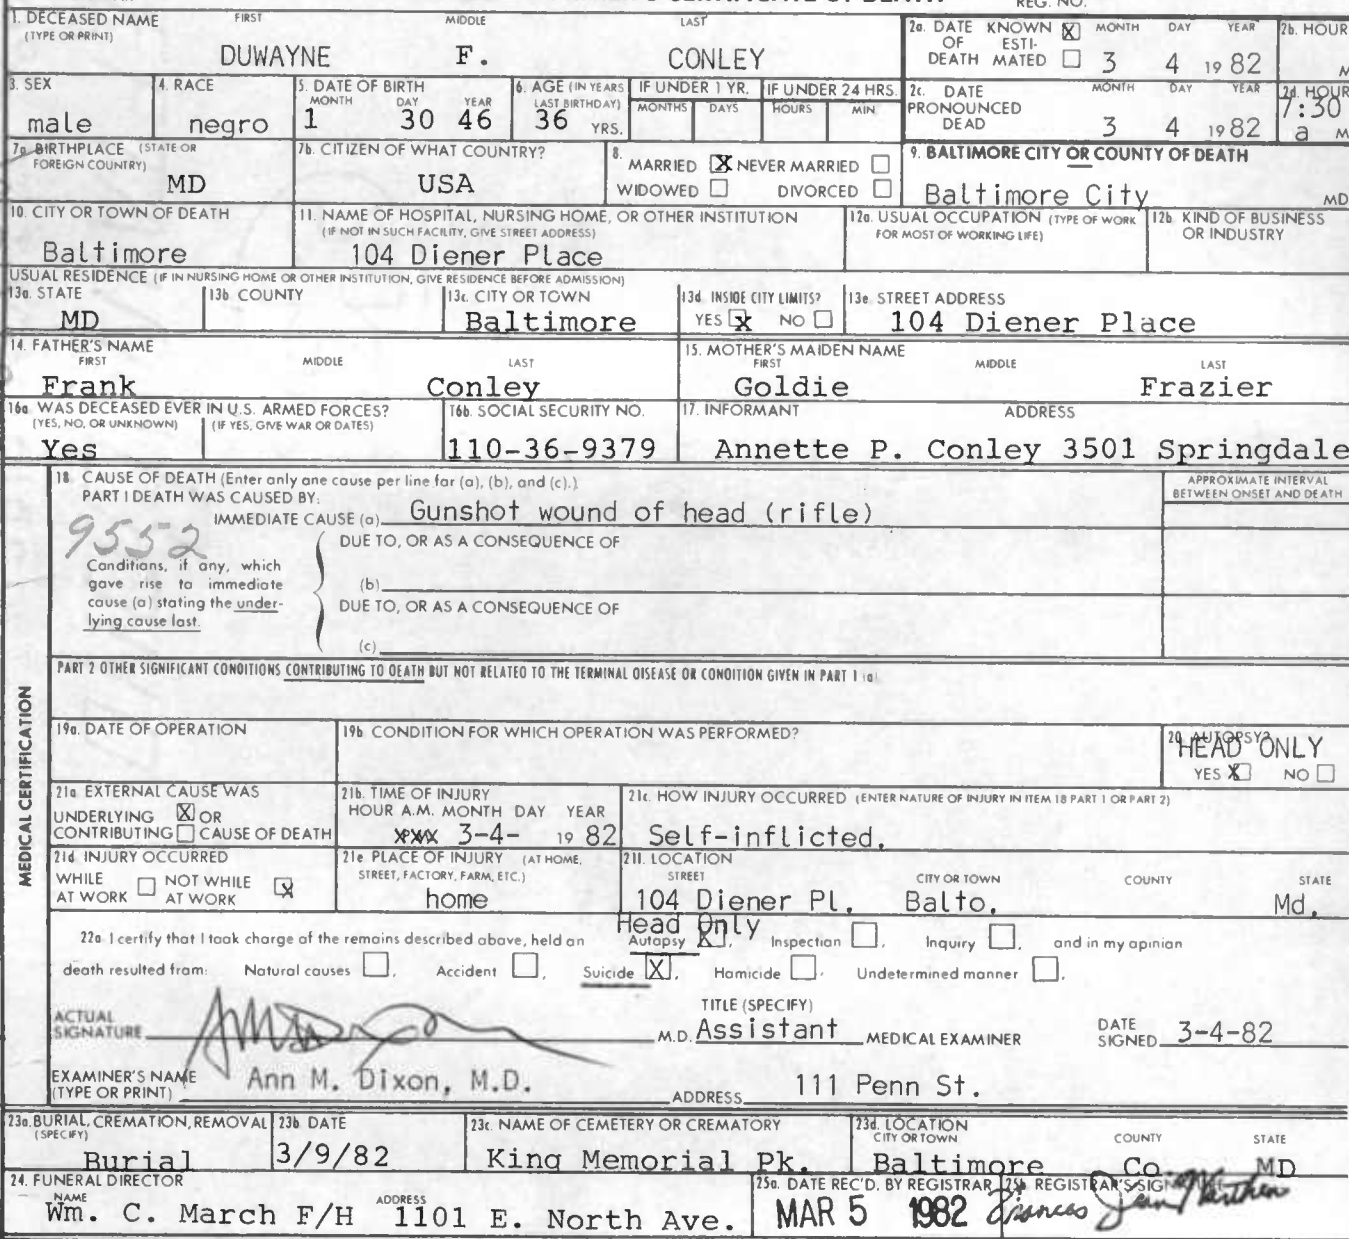 1. DECEASED NAME FIRST MIDDLE LAST
(TYPE OR PRINT)
DUWAYNE F. CONLEY
2a. DATE OF DEATH KNOWN X ESTI-MATED MONTH DAY YEAR
3 4 1982
2b. HOUR
M
3. SEX
male
4. RACE
negro
5. DATE OF BIRTH
MONTH DAY YEAR
1 30 46
6. AGE (IN YEARS LAST BIRTHDAY)
36 YRS.
IF UNDER 1 YR.
MONTHS DAYS
IF UNDER 24 HRS.
HOURS MIN
2c. DATE PRONOUNCED DEAD MONTH DAY YEAR
3 4 1982
2d. HOUR
7:30
a M
7a. BIRTHPLACE (STATE OR FOREIGN COUNTRY)
MD
7b. CITIZEN OF WHAT COUNTRY?
USA
8. MARRIED X NEVER MARRIED
WIDOWED DIVORCED
9. BALTIMORE CITY OR COUNTY OF DEATH
Baltimore City MD
10. CITY OR TOWN OF DEATH
Baltimore
11. NAME OF HOSPITAL, NURSING HOME, OR OTHER INSTITUTION
(IF NOT IN SUCH FACILITY, GIVE STREET ADDRESS)
104 Diener Place
12a. USUAL OCCUPATION (TYPE OF WORK FOR MOST OF WORKING LIFE)
12b. KIND OF BUSINESS OR INDUSTRY
USUAL RESIDENCE (IF IN NURSING HOME OR OTHER INSTITUTION, GIVE RESIDENCE BEFORE ADMISSION)
13a. STATE
MD
13b COUNTY
13c. CITY OR TOWN
Baltimore
13d. INSIDE CITY LIMITS?
YES X NO
13e. STREET ADDRESS
104 Diener Place
14. FATHER'S NAME
FIRST MIDDLE LAST
Frank Conley
15. MOTHER'S MAIDEN NAME
FIRST MIDDLE LAST
Goldie Frazier
16a. WAS DECEASED EVER IN U.S. ARMED FORCES?
(YES, NO, OR UNKNOWN) (IF YES, GIVE WAR OR DATES)
Yes
16b. SOCIAL SECURITY NO.
110-36-9379
17. INFORMANT ADDRESS
Annette P. Conley 3501 Springdale
MEDICAL CERTIFICATION
18. CAUSE OF DEATH (Enter only one cause per line for (a), (b), and (c).)
PART I DEATH WAS CAUSED BY:
APPROXIMATE INTERVAL BETWEEN ONSET AND DEATH
IMMEDIATE CAUSE (a) Gunshot wound of head (rifle)
9552
DUE TO, OR AS A CONSEQUENCE OF
Conditions, if any, which gave rise to immediate cause (a) stating the under-lying cause last.
(b)
DUE TO, OR AS A CONSEQUENCE OF
(c)
PART 2 OTHER SIGNIFICANT CONDITIONS CONTRIBUTING TO DEATH BUT NOT RELATED TO THE TERMINAL DISEASE OR CONDITION GIVEN IN PART 1 (a)
19a. DATE OF OPERATION
19b CONDITION FOR WHICH OPERATION WAS PERFORMED?
20. AUTOPSY?
HEAD ONLY
YES X NO
21a EXTERNAL CAUSE WAS
UNDERLYING X OR
CONTRIBUTING CAUSE OF DEATH
21b. TIME OF INJURY
HOUR A.M. MONTH DAY YEAR
3-4- 1982
21c. HOW INJURY OCCURRED (ENTER NATURE OF INJURY IN ITEM 18 PART 1 OR PART 2)
Self-inflicted.
21d INJURY OCCURRED
WHILE AT WORK NOT WHILE AT WORK X
21e PLACE OF INJURY (AT HOME, STREET, FACTORY, FARM, ETC.)
home
21f. LOCATION
STREET CITY OR TOWN COUNTY STATE
104 Diener Pl. Balto. Md.
Head Only
22a I certify that I took charge of the remains described above, held an Autopsy X, Inspection , Inquiry , and in my opinion
death resulted from: Natural causes , Accident , Suicide X, Homicide , Undetermined manner ,
TITLE (SPECIFY)
ACTUAL SIGNATURE M.D. Assistant MEDICAL EXAMINER DATE SIGNED 3-4-82
EXAMINER'S NAME (TYPE OR PRINT) Ann M. Dixon, M.D. ADDRESS 111 Penn St.
23a. BURIAL, CREMATION, REMOVAL (SPECIFY)
Burial
23b DATE
3/9/82
23c. NAME OF CEMETERY OR CREMATORY
King Memorial Pk.
23d. LOCATION
CITY OR TOWN COUNTY STATE
Baltimore Co. MD
24. FUNERAL DIRECTOR
NAME ADDRESS
Wm. C. March F/H 1101 E. North Ave.
25a. DATE REC'D. BY REGISTRAR
MAR 5 1982
25b REGISTRAR'S
Frances Jean